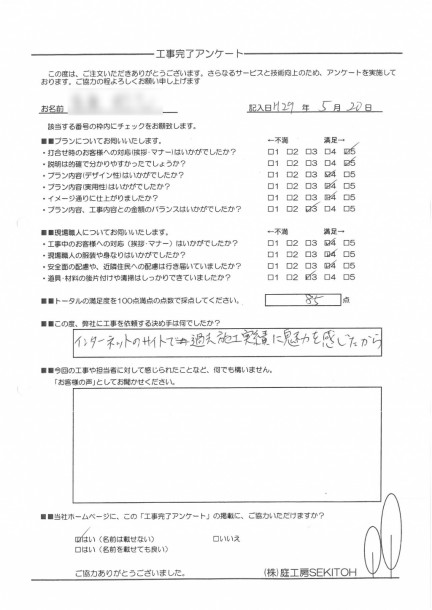 工事完了アンケート
この度は、ご注文いただきありがとうございます。さらなるサービスと技術向上のため、アンケートを実施して
おります。ご協力の程よろしくお願い申し上げます
お名前 記入日 H29 年 5 月 20 日
該当する番号の枠内にチェックをお願致します。
■■プランについてお伺いいたします。 ←不満 満足→
・打合せ時のお客様への対応(挨拶・マナー)はいかがでしたか? □1 □2 □3 □4 ☑5
・説明は的確で分かりやすかったでしょうか? □1 □2 □3 □4 ☑5
・プラン内容(デザイン性)はいかがでしたか? □1 □2 □3 ☑4 □5
・プラン内容(実用性)はいかがでしたか? □1 □2 □3 ☑4 □5
・イメージ通りに仕上がりましたか? □1 □2 □3 ☑4 □5
・プラン内容、工事内容との金額のバランスはいかがでしたか? □1 □2 ☑3 □4 □5
■■現場職人についてお伺いいたします。 ←不満 満足→
・工事中のお客様への対応(挨拶・マナー)はいかがでしたか? □1 □2 □3 ☑4 □5
・現場職人の服装や身なりはいかがでしたか? □1 □2 □3 ☑4 □5
・安全面の配慮や、近隣住民への配慮は行き届いていましたか? □1 □2 □3 ☑4 □5
・道具・材料の後片付けや清掃はしっかりできていましたか? □1 □2 ☑3 □4 □5
■■トータルの満足度を100点満点の点数で採点してください。 85 点
■■この度、弊社に工事を依頼する決め手は何でしたか?
インターネットのサイトで過去施工実績に魅力を感じたから
■■今回の工事や担当者に対して感じられたことなど、何でも構いません。
「お客様の声」としてお聞かせください。
■■当社ホームページに、この「工事完了アンケート」の掲載に、ご協力いただけますか?
☑はい(名前は載せない) □いいえ
□はい(名前を載せても良い)
ご協力ありがとうございました。 (株)庭工房SEKITOH